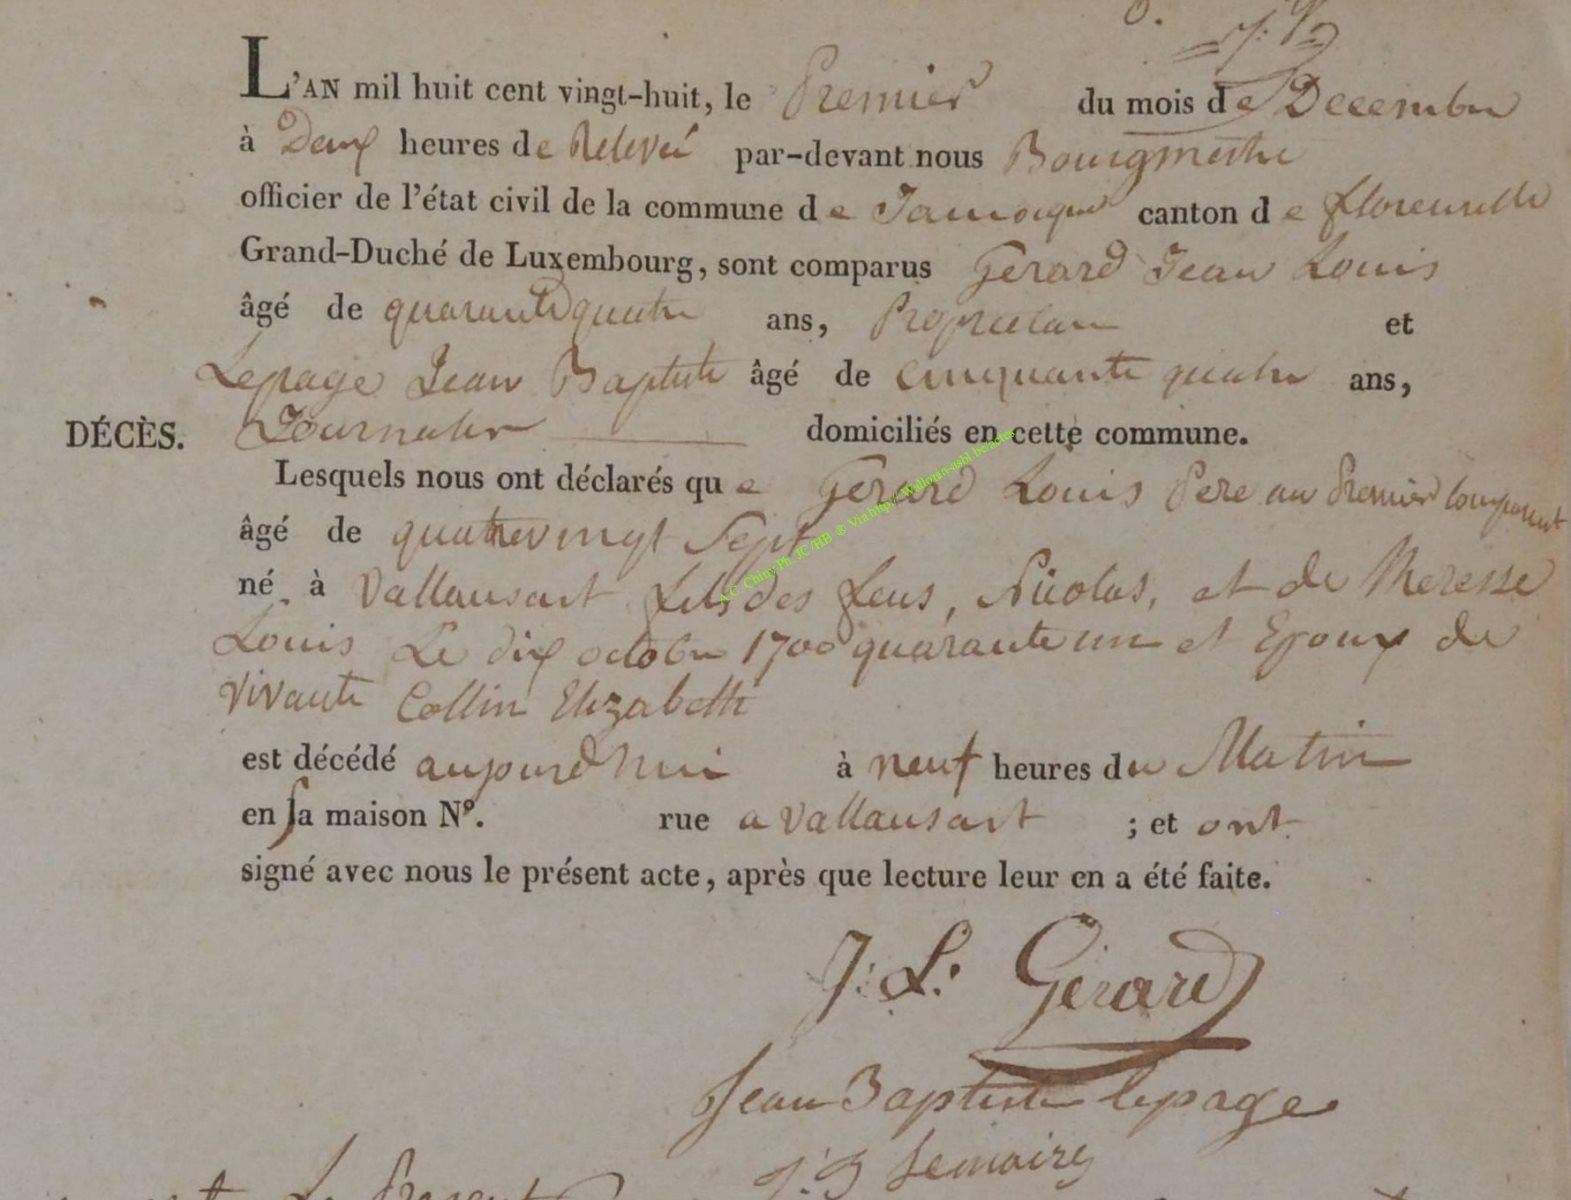 L'AN mil huit cent vingt-huit, le Premier du mois de Decembre
à Deux heures de Relevé par-devant nous Bourgmestre
officier de l'état civil de la commune de Jamoigne canton de florenville
Grand-Duché de Luxembourg, sont comparus Gerard Jean Louis
âgé de quarante quatre ans, Proprietaire et
Lepage Jean Baptiste âgé de cinquante quatre ans,
DÉCÈS. Journalier domiciliés en cette commune.
Lesquels nous ont déclarés que Gerard Louis Pere au Premier Comparant
âgé de quatrevingt Sept
né à Vallansart fils des feus, Nicolas, et de Theresse
Louis Le dix octobre 1700 quarante un et Epoux de
vivante Collin Elizabeth
est décédé aujourd'hui à neuf heures du Matin
en sa maison N°. rue a Vallansart ; et ont
signé avec nous le présent acte, après que lecture leur en a été faite.
A.C. Chiny Ph. JC/HB ® Via http://wallonia-asbl.be/actes
J: L: Gérard
Jean Baptiste lepage
Le Present